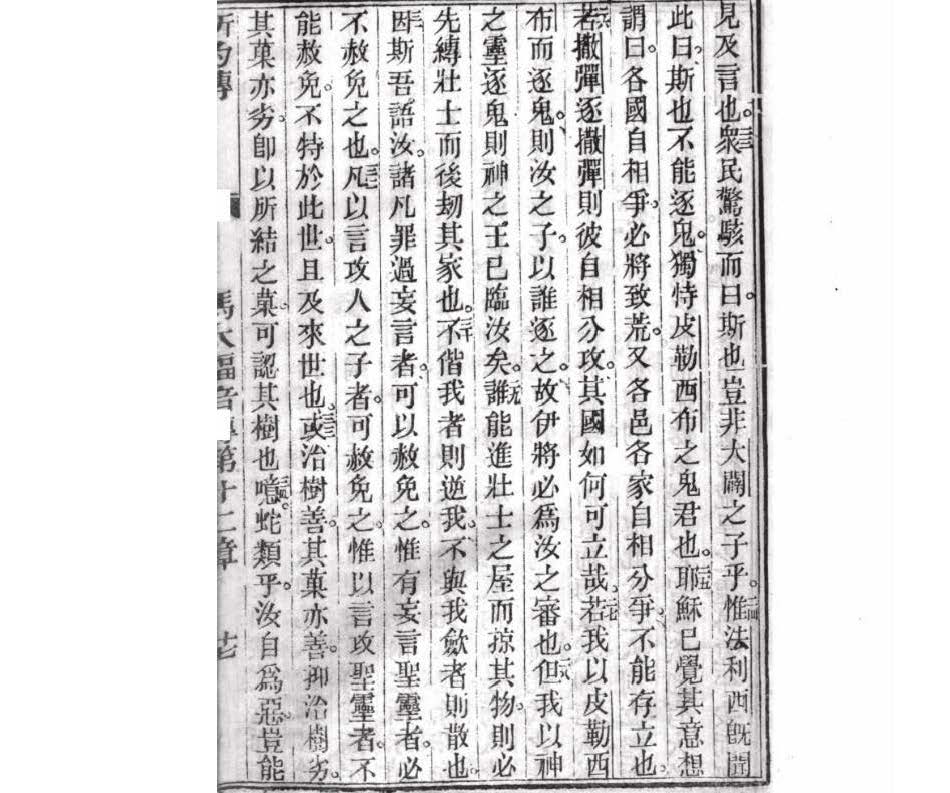 見及言也。三三衆民驚駭而曰。斯也豈非大闢之子乎。三四惟法利西旣聞
此曰。斯也不能逐鬼。獨恃皮勒西布之鬼君也。三五耶穌已覺其意想
謂曰。各國自相爭。必將致荒。又各邑各家自相分爭。不能存立也。
若撒彈逐撒彈則彼自相分攻。其國如何可立哉。若我以皮勒西
布而逐鬼。則汝之子。以誰逐之。故伊將必爲汝之審也。但我以神
之靈逐鬼則神之王已臨汝矣。誰能進壯士之屋而掠其物。則必
先縛壯士而後刼其家也。不偕我者則逆我。不與我歛者則散也。
因斯吾語汝。諸凡罪過妄言者。可以赦免之。惟有妄言聖靈者。必
不赦免之也。凡以言攻人之子者。可赦免之。惟以言攻聖靈者。不
能赦免。不特於此世。且及來世也。或治樹善。其菓亦善。抑治樹劣。
其菓亦劣。卽以所結之菓。可認其樹也。噫。蛇類乎。汝自爲惡。豈能
馬太福音傳第十二章